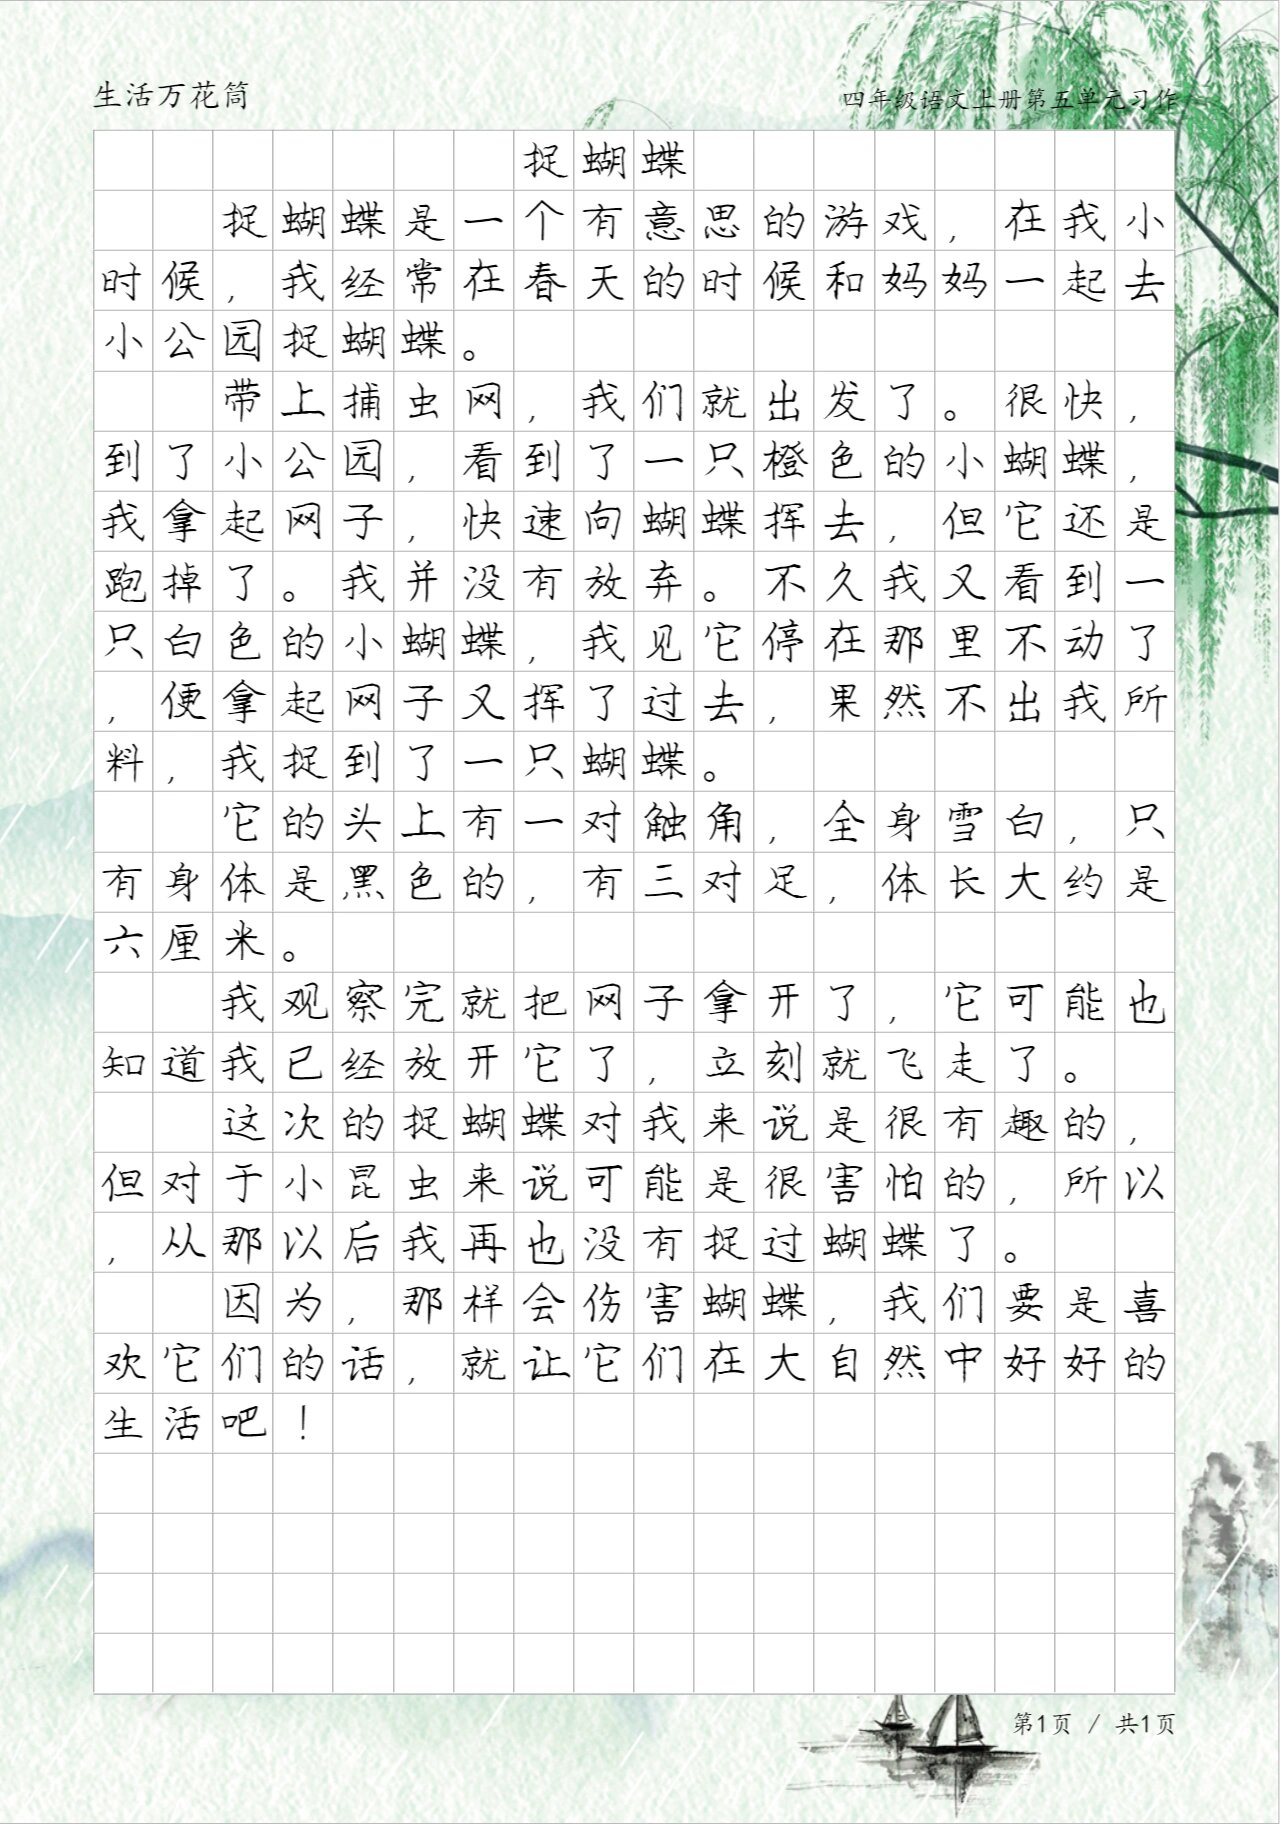 生活万花筒
四年级语文上册第五单元习作
捉蝴蝶
捉蝴蝶是一个有意思的游戏，在我小
时候，我经常在春天的时候和妈妈一起去
小公园捉蝴蝶。
带上捕虫网，我们就出发了。很快，
到了小公园，看到了一只橙色的小蝴蝶，
我拿起网子，快速向蝴蝶挥去，但它还是
跑掉了。我并没有放弃。不久我又看到一
只白色的小蝴蝶，我见它停在那里不动了
，便拿起网子又挥了过去，果然不出我所
料，我捉到了一只蝴蝶。
它的头上有一对触角，全身雪白，只
有身体是黑色的，有三对足，体长大约是
六厘米。
我观察完就把网子拿开了，它可能也
知道我已经放开它了，立刻就飞走了。
这次的捉蝴蝶对我来说是很有趣的，
但对于小昆虫来说可能是很害怕的，所以
，从那以后我再也没有捉过蝴蝶了。
因为，那样会伤害蝴蝶，我们要是喜
欢它们的话，就让它们在大自然中好好的
生活吧！
第1页 / 共1页